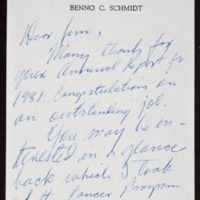 BENNO C. SCHMIDT
Dear Jim,
Many thanks for
your Annual Report for
1981. Congratulations on
an outstanding job.
You may be in-
terested in a glance
back which I took
at the Cancer Program